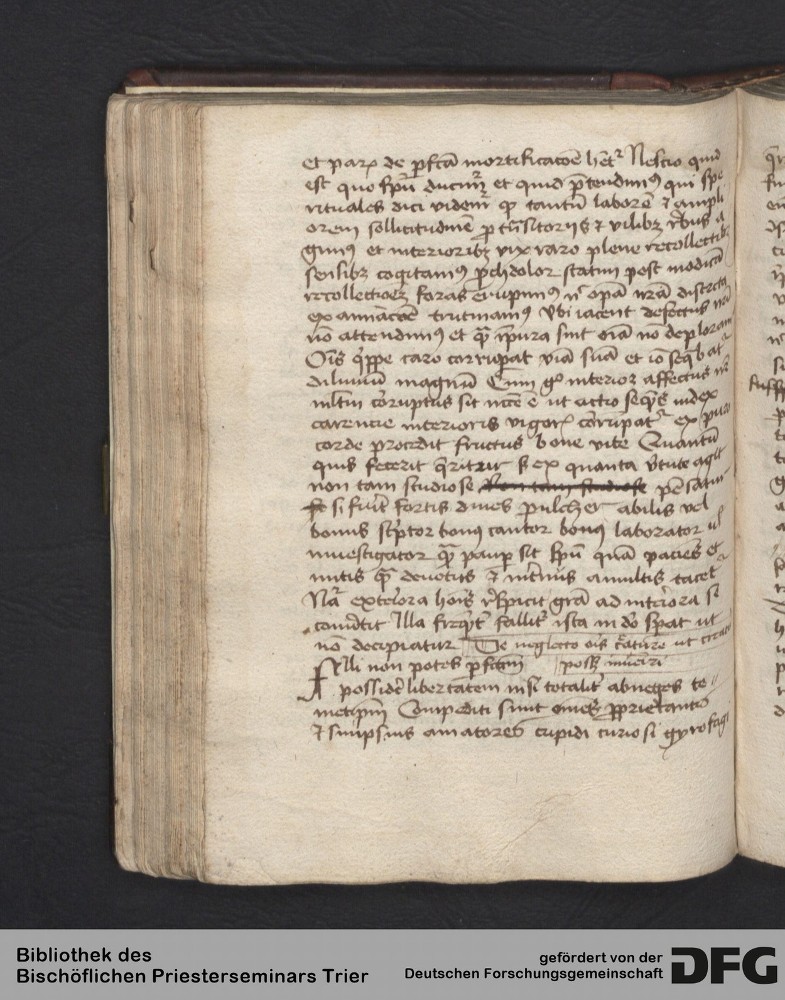 et parũ de pfcã mortificacõe hẽt² Nescio quid
est quo spũ ducim² et quid p̃tendim⁹ qui spi
rituales dici videm² qꝫ tantũ laborẽ ⁊ ampli
orem sollicitudinẽ ꝓ trãsitorijs ⁊ vilibꝫ rebus a
gim⁹ et interioribꝫ vix raro plene recollectis
sensibꝫ cogitam⁹ ꝓchdolor statim post modicã
recollectioẽꝫ foras erũpim⁹ nᶜ opã nr̃ã districta
examinacõe trutinam⁹ Vbi iacent defectus nr̃i
nõ attendim⁹ et qᷓ ĩpura sint oĩa nõ deploram⁹
Oĩs q̃ppe caro corruperat viã suã et iõ seq̃bat²
diluuiũ magnũ Cum gᵒ interior affectus nr̃
mltm corruptus sit necẽ ẽ ut actio seq̃ns index
carencie interioris vigoris corrũpat² ex puro
corde procedit fructus bone vite Quantũ
quis fecerit q̃ritur sꝫ ex quanta v̓tute agit
non tam studiose pẽsatur
si fuĩt fortis diues pulcher abilis vel
bonus sc̓ptor bonꝯ cantor bonꝯ laborator ul
inuestigator qᷓ paup sit spũ quã paciẽs et
mitis qᷓ deuotus ⁊ int̓nus a multis tacet²
Nã exteriora hoĩs respicit grã ad interiora se
conũtit Illa freq̃nt̓ fallit² ista in dõ sperat ut
nõ decipiatur De neglecto oĩs creature ut creator
FIli non potes pfctam possꝫ inueniri
possidẽ libertatem nisi totalit̓ abneges te //
metipm̃ Compediti sunt omẽs ꝓprietarij
⁊ suiipsius amatores cupidi curiosi gyrofagi
Bibliothek des
Bischöflichen Priesterseminars Trier
gefördert von der
Deutschen Forschungsgemeinschaft
DFG